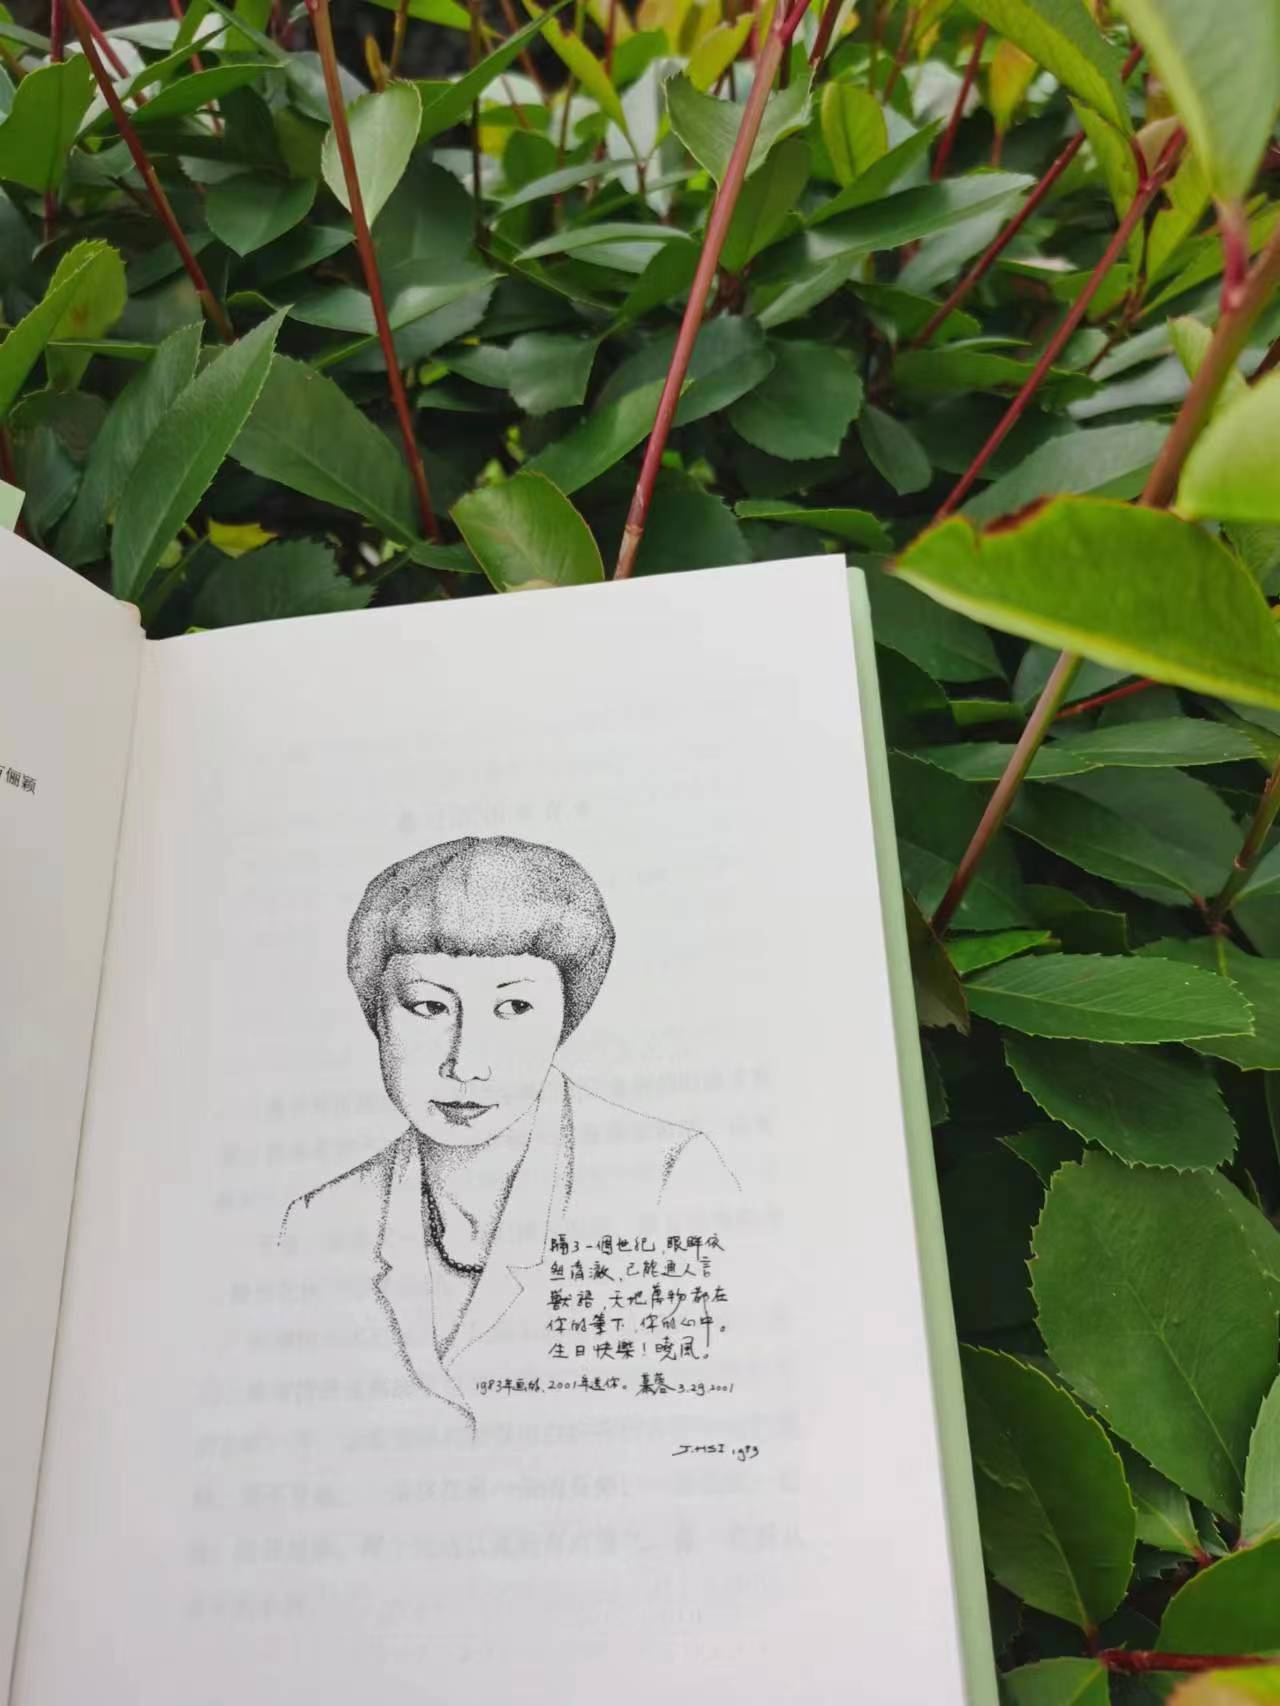 俪颖
隔了一個世紀，眼眸依
然清澈，已能通人言
獸語，天地萬物都在
你的筆下，你的心中。
生日快樂！曉風。
1983年画的，2001年送你。慕蓉 3.29.2001
J.HSI 1983